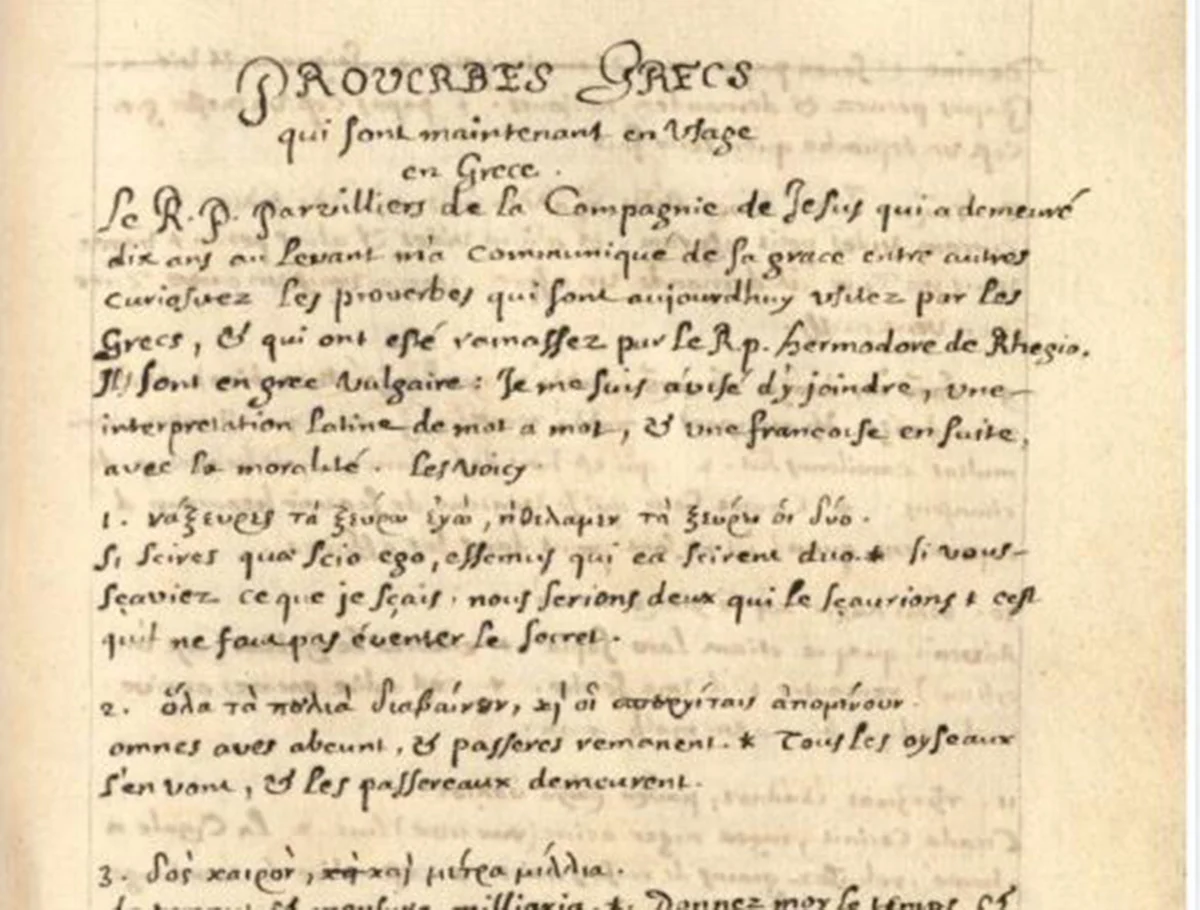 PROVERBES GRECS
qui sont maintenant en Vsage
en Grece.
Le R. P. Parvilliers de la Compagnie de Jesus qui a demeuré
dix ans au Levant m'a communiqué de sa grace entre autres
curiositez les proverbes qui sont aujourdhuy vsitez par les
Grecs, & qui ont esté ramassez par le R. p. hermodore de Rhegio.
Ils sont en grec vulgaire : Je me suis avisé d'y joindre, vne
interpretation latine de mot a mot, & vne françoise en suite,
avec la moralité. Les voicy
1. νάξευρες τὰ ξεύρω ἐγὼ, ἠθέλαμεν τὰ ξεύρω οἱ δύο.
Si scires quæ scio ego, essemus qui ea scirent duo. * si vous
sçaviez ce que je sçais, nous serions deux qui le sçaurions + c'est
qu'il ne faut pas éventer le secret.
2. ὅλα τὰ πυλιὰ διαβαίνουν, κ̀ οἱ σπυργίταις ἀπομένουν.
omnes aves abeunt, & passeres remanent. * Tous les oyseaux
s'en vont, & les passereaux demeurent.
3. δὸς καιρὸν, καὶ μέτρα μίλλια.
& mensura milliaria. * Donnez moy le temps, &